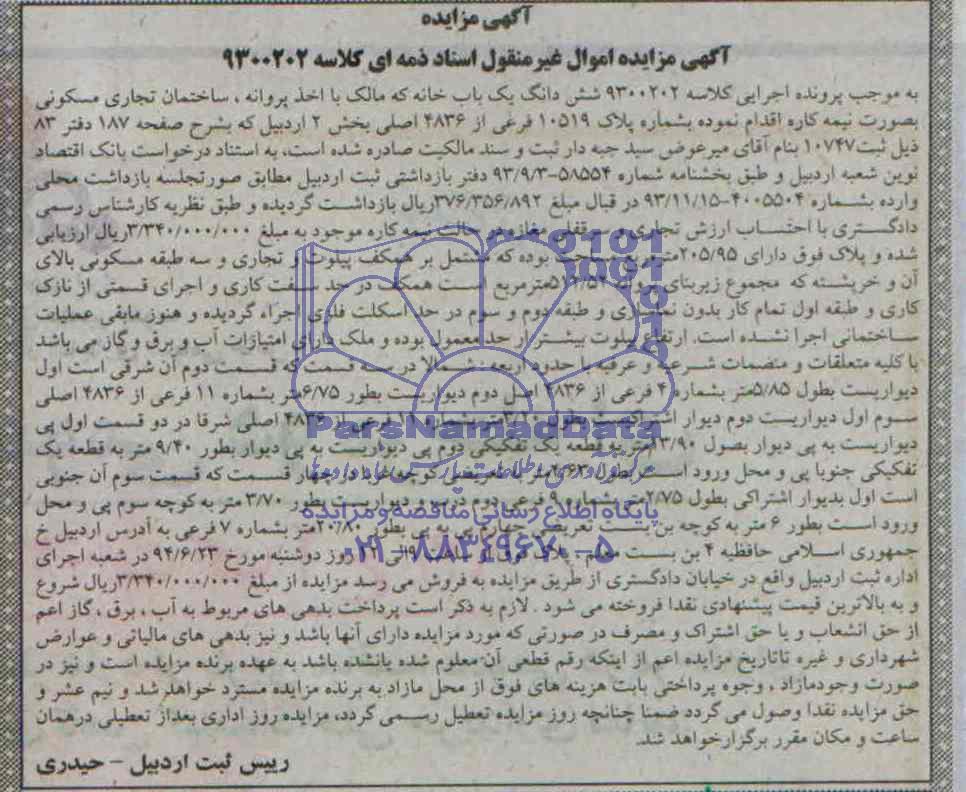 آگهی مزایده
آگهی مزایده اموال غیر منقول اسناد ذمه ای کلاسه ۹۳۰۰۲۰۲
به موجب پرونده اجرایی کلاسه ۹۳۰۰۲۰۲ شش دانگ یک باب خانه که مالک با اخذ پروانه ، ساختمان تجاری مسکونی
بصورت نیمه کاره اقدام نموده بشماره پلاک ۱۰۵۱۹ فرعی از ۴۸۳۶ اصلی بخش ۲ اردبیل که بشرح صفحه ۱۸۷ دفتر ۸۳
ذیل ثبت ۱۰۷۴۷ بنام آقای میرعوض سید جبه دار ثبت و سند مالکیت صادره شده است، به استناد درخواست بانک اقتصاد
نوین شعبه اردبیل و طبق بخشنامه شماره ۵۸۵۵۴-۹۳/۹/۳ دفتر بازداشتی ثبت اردبیل مطابق صورتجلسه بازداشت محلی
وارده بشماره ۴۰۰۵۵۰۴-۹۳/۱۱/۱۵ در قبال مبلغ ۳۷۶/۳۵۶/۸۹۲ریال بازداشت گردیده و طبق نظریه کارشناس رسمی
دادگستری با احتساب ارزش تجاری و سرقفلی مغازه در حالت نیمه کاره موجود به مبلغ ۳/۳۴۰/۰۰۰/۰۰۰ریال ارزیابی
شده و پلاک فوق دارای ۲۰۵/۹۵مترمربع مساحت بوده که مشتمل بر همکف پیلوت و تجاری و سه طبقه مسکونی بالای
آن و خرپشته که مجموع زیربنای مترمربع است همکف در حد سفت کاری و اجرای قسمتی از نازک
کاری و طبقه اول تمام کار بدون نماسازی و طبقه دوم و سوم در حد اسکلت فلزی اجراء گردیده و هنوز مابقی عملیات
ساختمانی اجرا نشده است. ارتفاع پیلوت بیشتر از حد معمول بوده و ملک دارای امتیازات آب و برق و گاز می باشد
با کلیه متعلقات و منضمات شرعیه و عرفیه با حدود اربعه شمالا در سه قسمت که قسمت دوم آن شرقی است اول
دیواریست بطول ۵/۸۵متر بشماره ۴ فرعی از ۴۸۳۶ اصل دوم دیواریست بطور ۶/۷۵متر بشماره ۱۱ فرعی از ۴۸۳۶ اصلی
سوم اول دیواریست دوم دیوار اشتراکیست بطول متر بشماره فرعی از ۴۸۳۶ اصلی شرقا در دو قسمت اول پی
دیواریست به پی دیوار بصول متر به قطعه یک تفکیکی دوم پی دیواریست به پی دیوار بطور ۹/۴۰ متر به قطعه یک
تفکیکی جنوبا پی و محل ورود است بطول متر با تعریضی کوچه غربا در چهار قسمت که قسمت سوم آن جنوبی
است اول بدیوار اشتراکی بطول ۲/۷۵متر بشماره ۹ فرعی دوم درب و دیواریست بطور ۳/۷۰ متر به کوچه سوم پی و محل
ورود است بطور ۶ متر به کوچه بن بست تعریض چهارم پی به پی بطور ۲۰/۸۰ متر بشماره ۷ فرعی به آدرس اردبیل خ
جمهوری اسلامی حافظیه ۴ بن بست معلم پلاک از ساعت ۹ الی ۱۲ روز دوشنبه مورخ ۹۴/۶/۲۳ در شعبه اجرای
اداره ثبت اردبیل واقع در خیابان دادگستری از طریق مزایده به فروش می رسد مزایده از مبلغ ۳/۳۴۰/۰۰۰/۰۰۰ریال شروع
و به بالاترین قیمت پیشنهادی نقدا فروخته می شود . لازم به ذکر است پرداخت بدهی های مربوط به آب ، برق ، گاز اعم
از حق انشعاب و یا حق اشتراک و مصرف در صورتی که مورد مزایده دارای آنها باشد و نیز بدهی های مالیاتی و عوارض
شهرداری و غیره تاتاریخ مزایده اعم از اینکه رقم قطعی آن معلوم شده یانشده باشد به عهده برنده مزایده است و نیز در
صورت وجودمازاد ، وجوه پرداختی بابت هزینه های فوق از محل مازاد به برنده مزایده مسترد خواهد شد و نیم عشر و
حق مزایده نقدا وصول می گردد ضمنا چنانچه روز مزایده تعطیل رسمی گردد، مزایده روز اداری بعداز تعطیلی درهمان
ساعت و مکان مقرر برگزار خواهد شد.
رییس ثبت اردبیل - حیدری
ParsNamadData
پایگاه اطلاع رسانی مناقصه و مزایده
۰۲۱-۸۸۳۴۹۶۷۰-۵